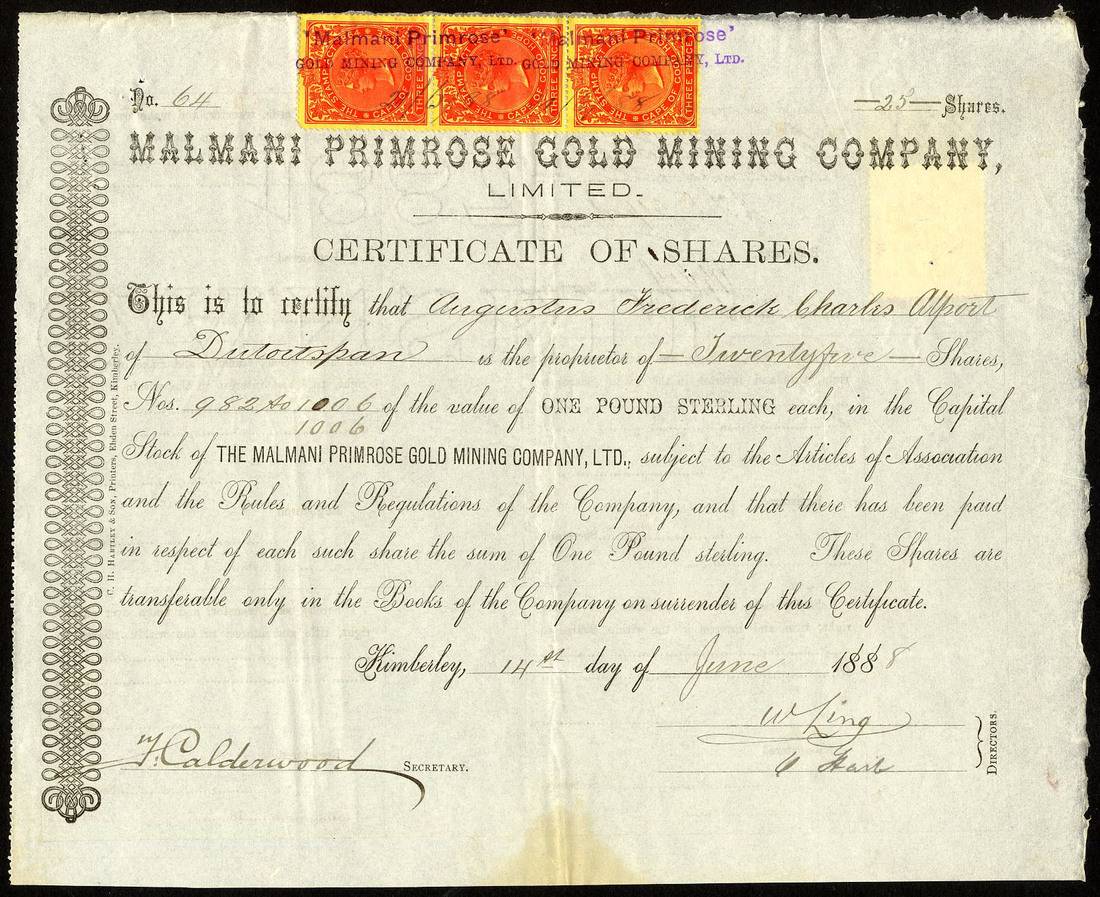 'Malmani Primrose' 'Malmani Primrose'
GOLD MINING COMPANY, LTD. GOLD MINING COMPANY, LTD.
THE STAMP CAPE OF GOOD THREE PENCE
No. 64
—25— Shares.
MALMANI PRIMROSE GOLD MINING COMPANY,
LIMITED.
CERTIFICATE OF SHARES.
This is to certify that Augustus Frederick Charles Alport
of Dutoitspan is the proprietor of — Twentyfive — Shares,
Nos. 982 to 1006 of the value of ONE POUND STERLING each, in the Capital
1006
Stock of THE MALMANI PRIMROSE GOLD MINING COMPANY, LTD., subject to the Articles of Association
and the Rules and Regulations of the Company, and that there has been paid
in respect of each such share the sum of One Pound sterling. These Shares are
transferable only in the Books of the Company on surrender of this Certificate.
Kimberley, 14th day of June 1888
W Ling
F. Calderwood SECRETARY.
DIRECTORS.
C. H. HARTLEY & SON, Printers, Ebden Street, Kimberley.